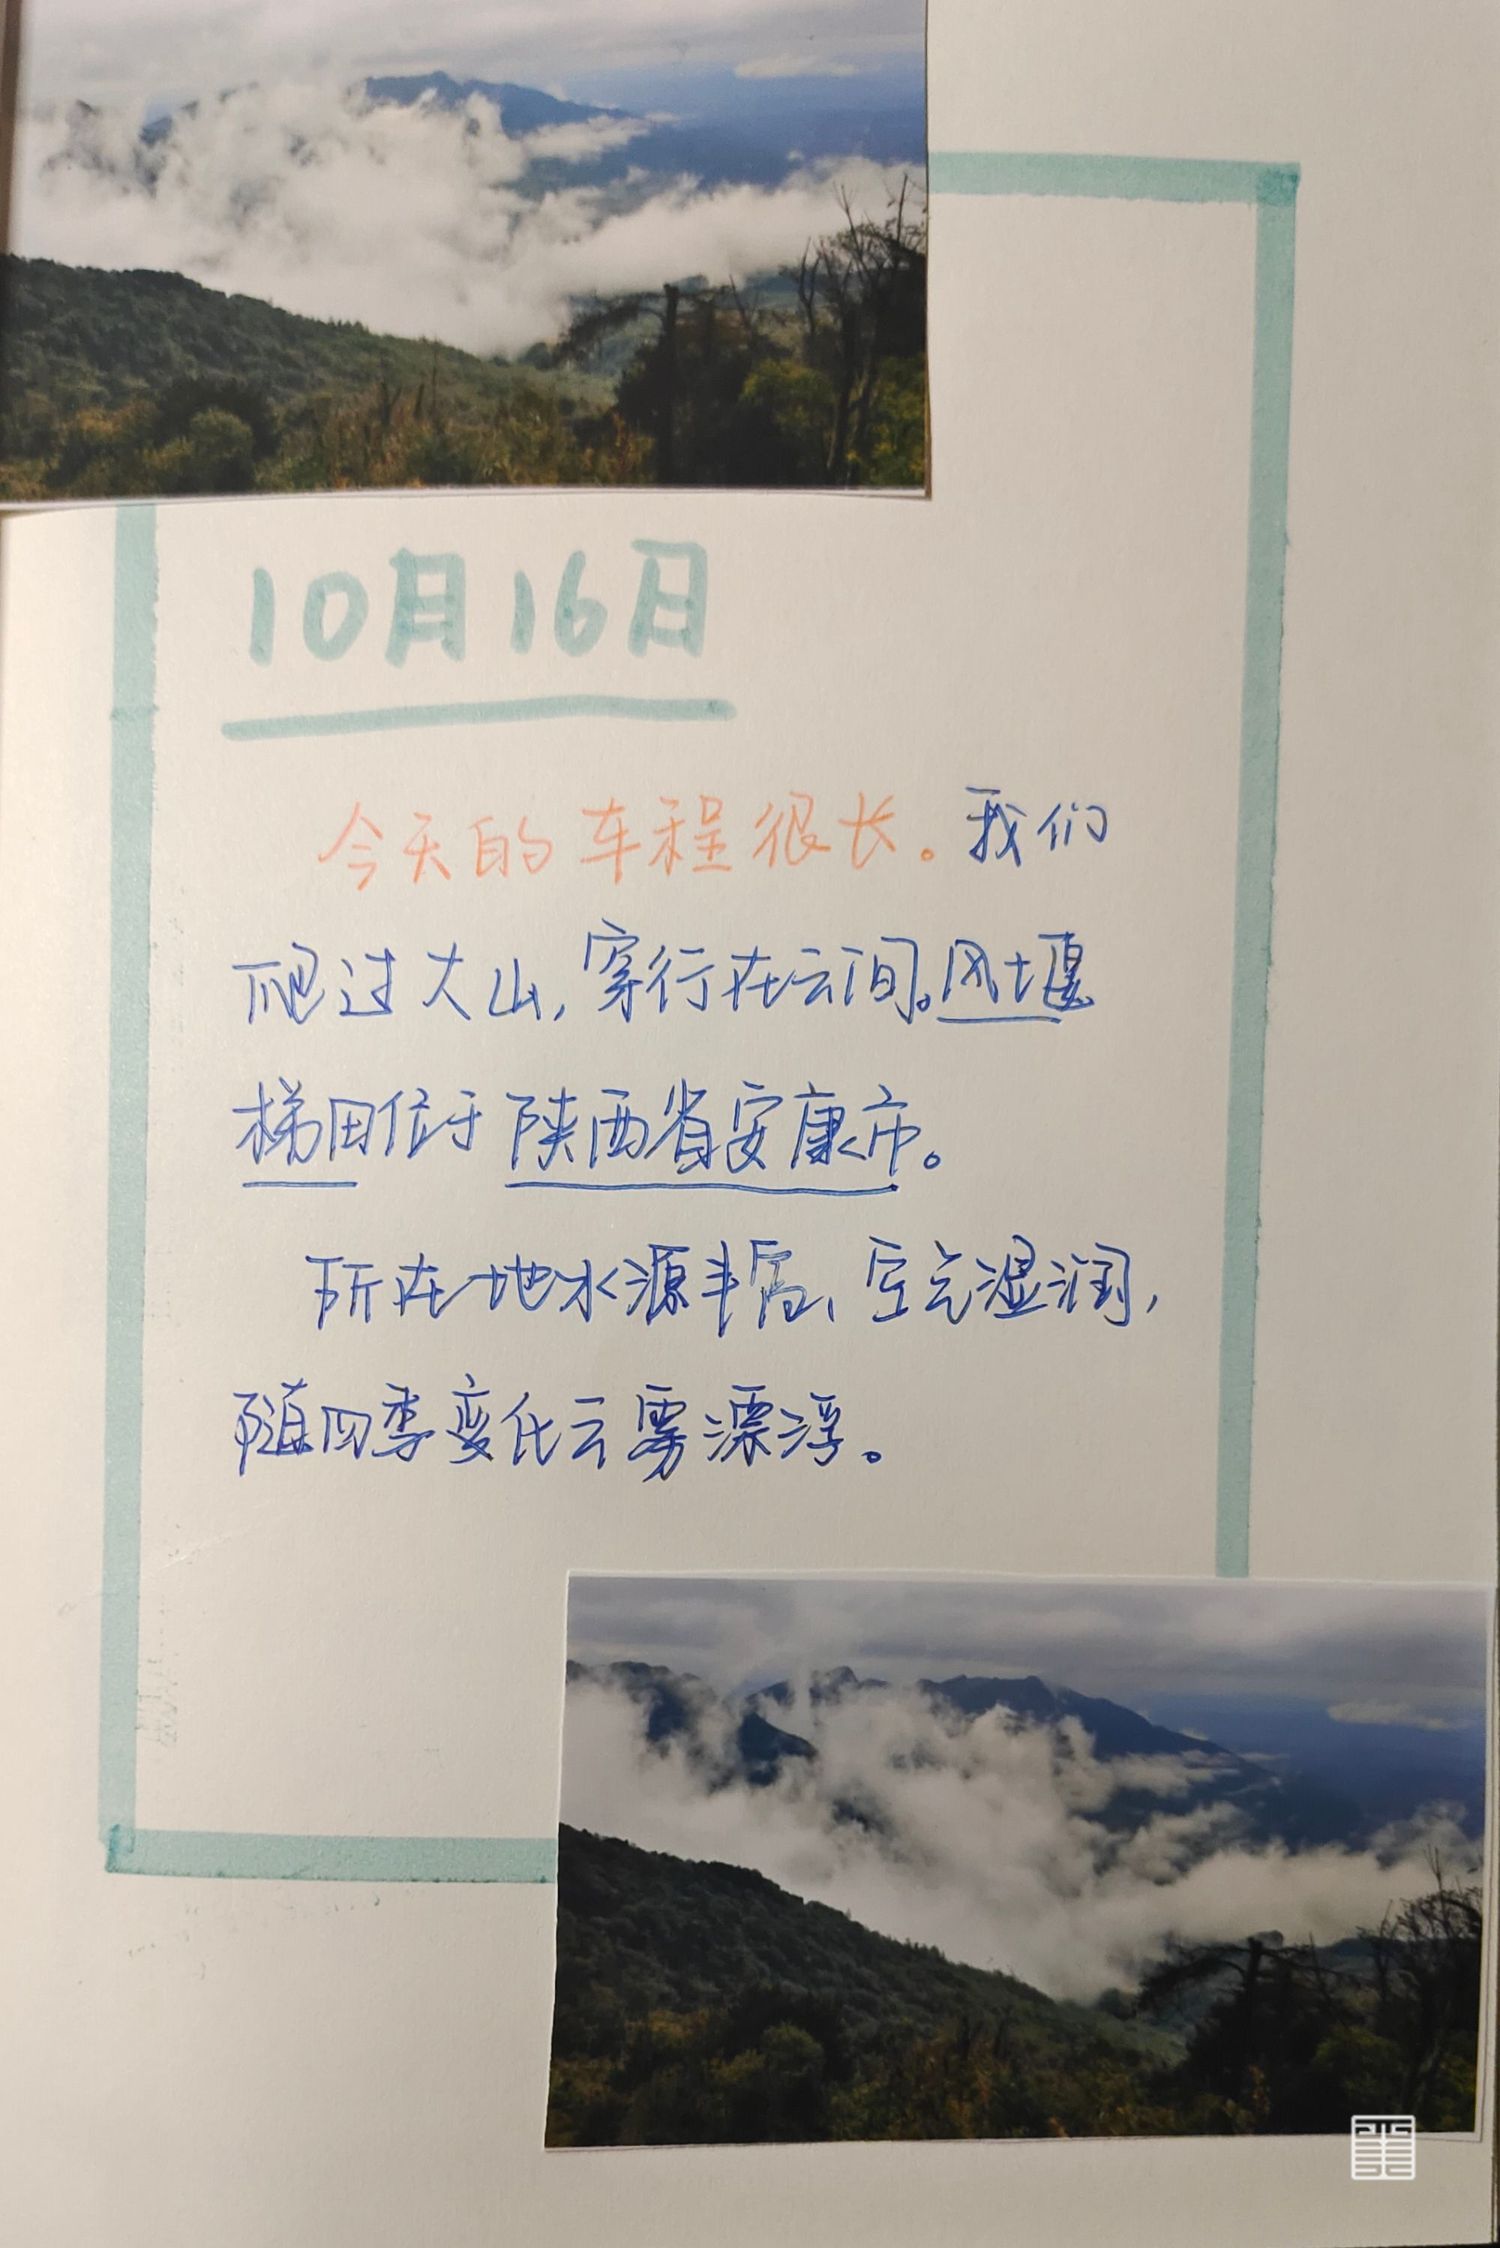 10月16日
今天的车程很长。我们
爬过大山,穿行在云间。凤堰
梯田位于陕西省安康市。
所在地水源丰富、空气湿润,
随四季变化云雾漂浮。